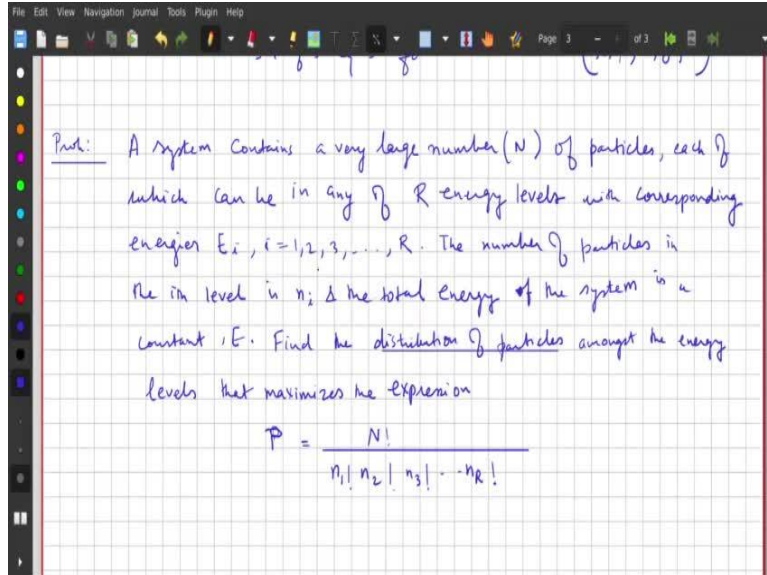 File Edit View Navigation Journal Tools Plugin Help
Page 3 of 3
Prob: A system contains a very large number (N) of particles, each of
which can be in any of R energy levels with corresponding
energies Ei, i=1,2,3,..., R. The number of particles in
the ith level is ni & the total energy of the system is a
constant, E. Find the distribution of particles amongst the energy
levels that maximizes the expression
P = N!
n1! n2! n3! ... nR!